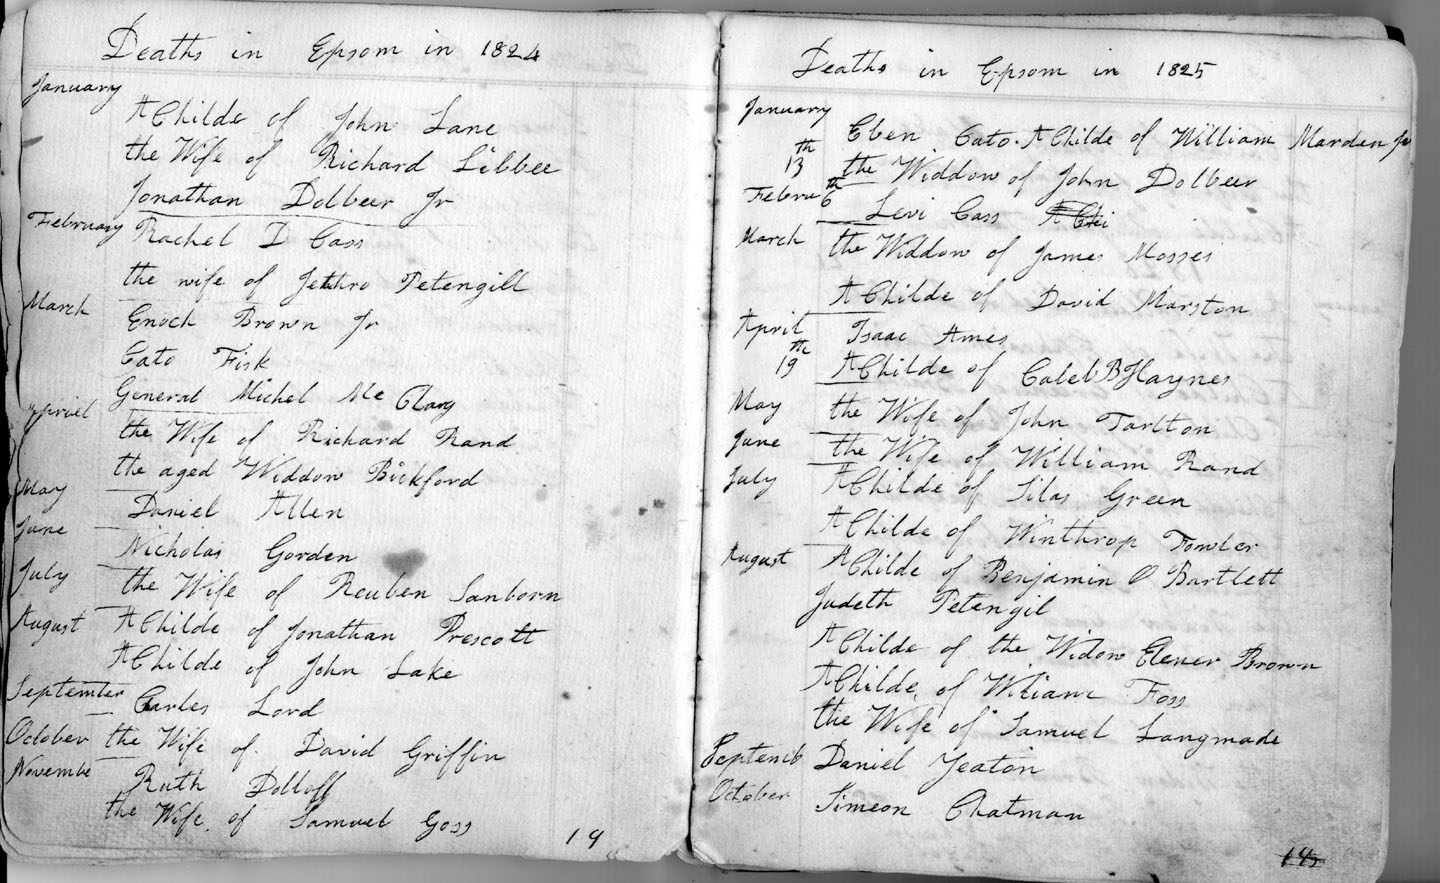 Deaths in Epsom in 1824
January
A Childe of John Lane
the Wife of Richard Libbee
Jonathan Dolbeer Jr
February Rachel D Cass
the wife of Jethro Petengill
March Enoch Brown Jr
Cato Fisk
General Michel Mc Clary
the Wife of Richard Rand
the aged Widdow Bickford
May Daniel Allen
June Nicholas Gorden
July the Wife of Reuben Sanborn
August A Childe of Jonathan Prescott
A Childe of John Lake
September Carles Lord
October the Wife of David Griffin
Novembe Ruth Dolloff
the Wife of Samuel Goss
19
Deaths in Epsom in 1825
January
Eben Cato. A Childe of William Marden Jr
13th the Widdow of John Dolbeer
Febru 6th Levi Cass A Chi
March the Widdow of James Mosses
A Childe of David Marston
April Isaac Ames
19th A Childe of Caleb B Haynes
May the Wife of John Tarlton
June the Wife of William Rand
July A Childe of Silas Green
A Childe of Winthrop Fowler
August A Childe of Benjamin O Bartlett
Judeth Petengil
A Childe of the Widow Elener Brown
A Childe of William Foss
the Wife of Samuel Langmade
Septemb Daniel Yeaton
October Simeon Chatman